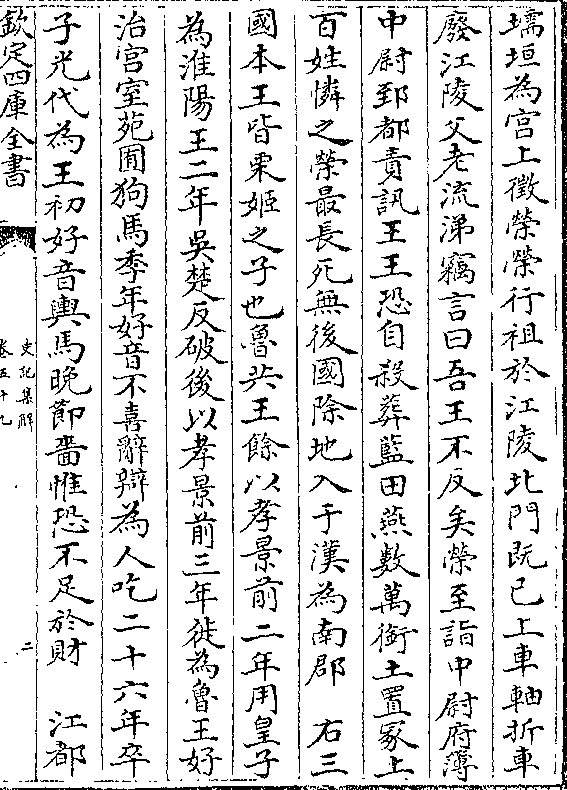 壖垣為宮上徵榮榮行祖於江陵北門既已上車軸折車
廢江陵父老流涕竊言曰吾王不反矣榮至詣中尉府簿
中尉郅都責訊王王恐自殺葬藍田燕數萬銜土置冢上
百姓憐之榮最長死無後國除地入于漢為南郡　右三
國本王皆栗姬之子也魯共王餘以孝景前二年用皇子
為淮陽王二年吳楚反破後以孝景前三年徙為魯王好
治宮室苑囿狗馬季年好音不喜辭辯為人吃二十六年卒
子光代為王初好音輿馬晚節嗇惟恐不足於財　江都
欽定四庫全書
史記集解
卷五十九
二